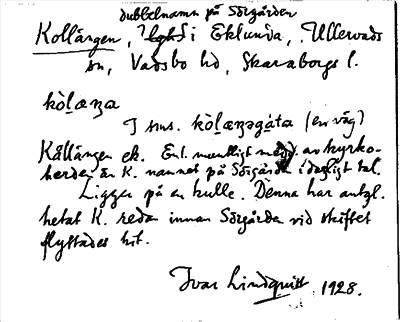 dubbelnamn på Sörgården
Kollängen, i Eklunda, Ullervads
sn, Vadsbo hd, Skaraborgs l.
kòḷæŋa
I sms. kòḷæŋəgàta (en väg)
Kållängen ek. Enl. muntligt medd. av kyrko-
herden är K. namnet på Sörgården i dagligt tal.
Ligger på en kulle. Denna har antagl.
hetat K. redan innan Sörgården vid skiftet
flyttades hit.
Ivar Lindquist 1928.